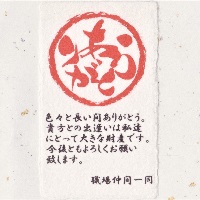 ありがとう
色々と長い間ありがとう。
貴方との出逢いは私達
にとって大きな財産です。
今後ともよろしくお願い
致します。
職場仲間一同